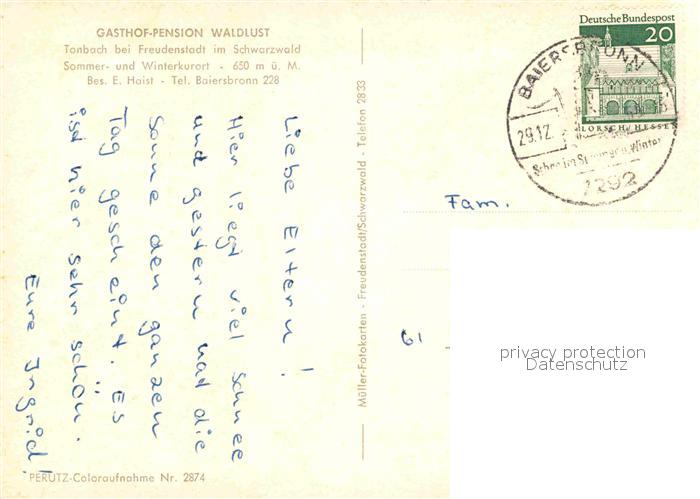 GASTHOF-PENSION WALDLUST
Tonbach bei Freudenstadt im Schwarzwald
Sommer- und Winterkurort - 650 m ü. M.
Bes. E. Haist - Tel. Baiersbronn 228
Liebe Eltern!
Hier liegt viel Schnee
und gestern hat die
Sonne den ganzen
Tag gescheint. Es
ist hier sehr schön.
Eure Ingrid!
PERUTZ-Coloraufnahme Nr. 2874
Müller-Fotokarten - Freudenstadt/Schwarzwald - Telefon 2833
Deutsche Bundespost
20
LORSCH/HESSEN
BAIERSBRONN
29.12.
Schön im Sommer u. Winter
7292
Fam.
61
privacy protection
Datenschutz